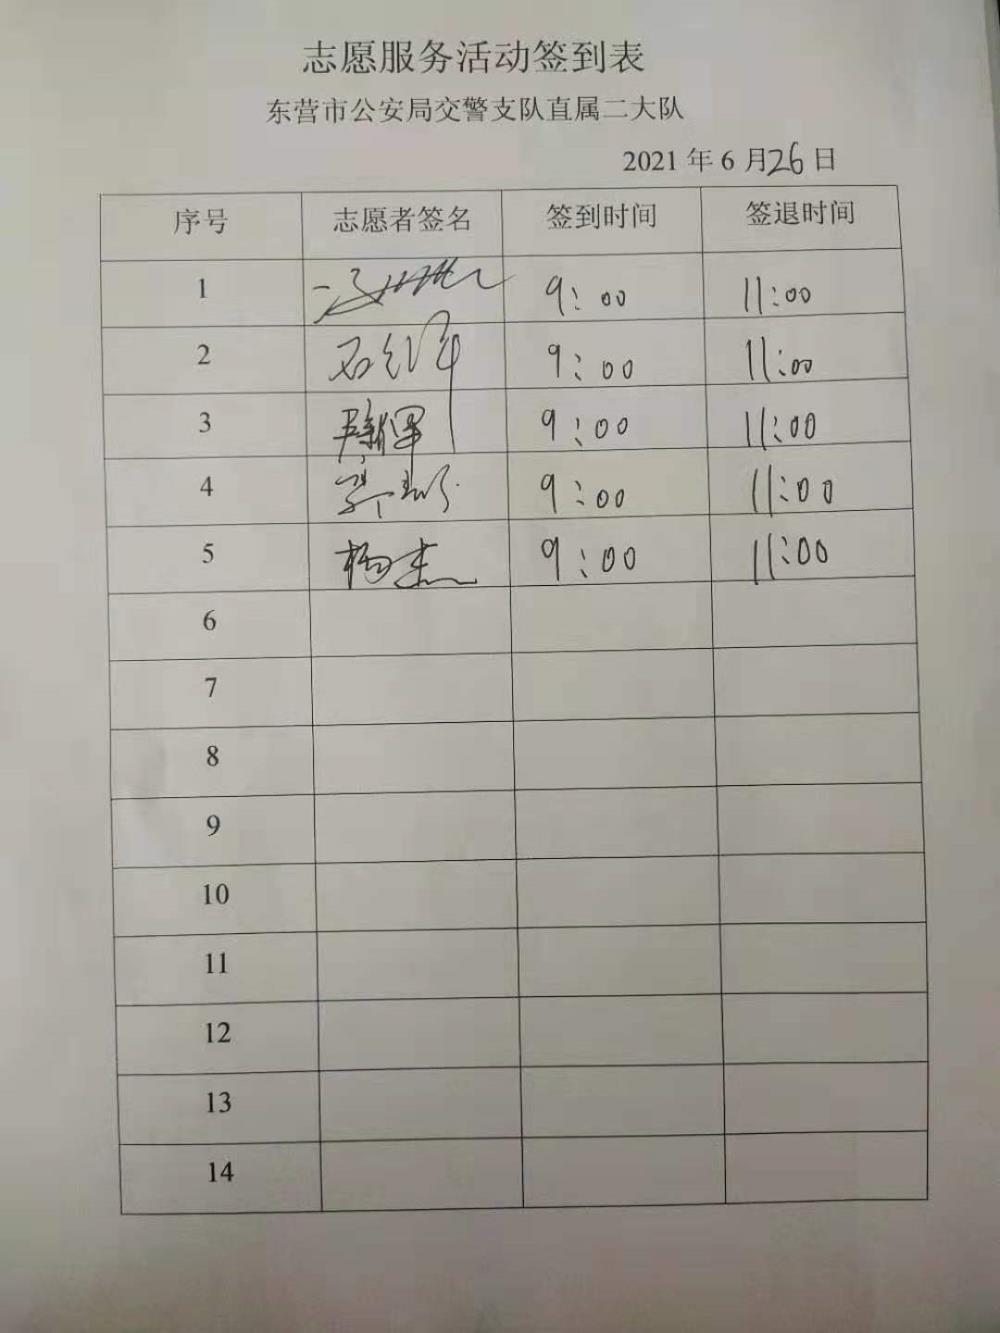 志愿服务活动签到表
东营市公安局交警支队直属二大队
2021 年 6 月26 日
序号 志愿者签名 签到时间 签退时间
1 9:00 11:00
2 9:00 11:00
3 9:00 11:00
4 9:00 11:00
5 杨杰 9:00 11:00
6
7
8
9
10
11
12
13
14